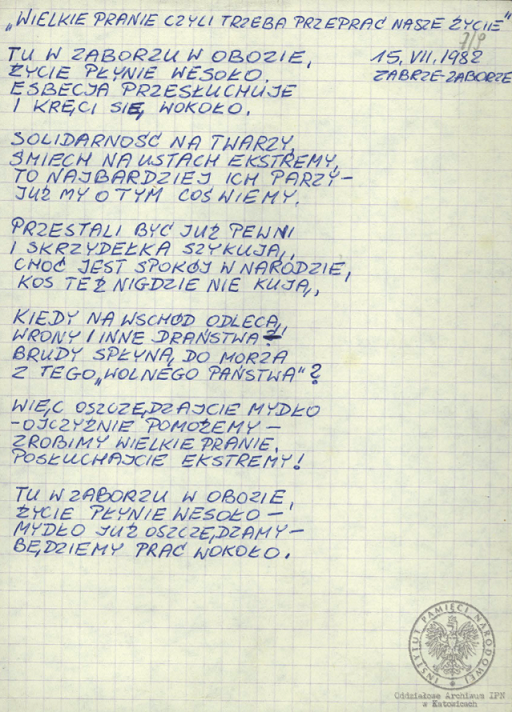 „WIELKIE PRANIE CZYLI TRZEBA PRZEPRAĆ NASZE ŻYCIE"
7/9
TU W ZABORZU W OBOZIE,
ŻYCIE PŁYNIE WESOŁO.
ESBECJA PRZESŁUCHUJE
I KRĘCI SIĘ, WOKOŁO.
15.VII.1982
ZABRZE-ZABORZE
SOLIDARNOŚĆ NA TWARZY,
ŚMIECH NA USTACH EKSTREMY,
TO NAJBARDZIEJ ICH PARZY–
JUŻ MY O TYM COŚ WIEMY.
PRZESTALI BYĆ JUŻ PEWNI
I SKRZYDEŁKA SZYKUJĄ,
CHOĆ JEST SPOKÓJ W NARODZIE,
KOS TEŻ NIGDZIE NIE KUJĄ,
KIEDY NA WSCHÓD ODLECĄ,
WRONY I INNE DRAŃSTWA
BRUDY SPŁYNĄ DO MORZA
Z TEGO „WOLNEGO PAŃSTWA"?
WIĘC OSZCZĘDZAJCIE MYDŁO
–OJCZYŹNIE POMOŻEMY–
ZROBIMY WIELKIE PRANIE.
POSŁUCHAJCIE EKSTREMY!
TU W ZABORZU W OBOZIE,
ŻYCIE PŁYNIE WESOŁO–
MYDŁO JUŻ OSZCZĘDZAMY–
BĘDZIEMY PRAĆ WOKOŁO.
INSTYTUT PAMIĘCI NARODOWEJ
Oddziałowe Archiwum IPN
w Katowicach